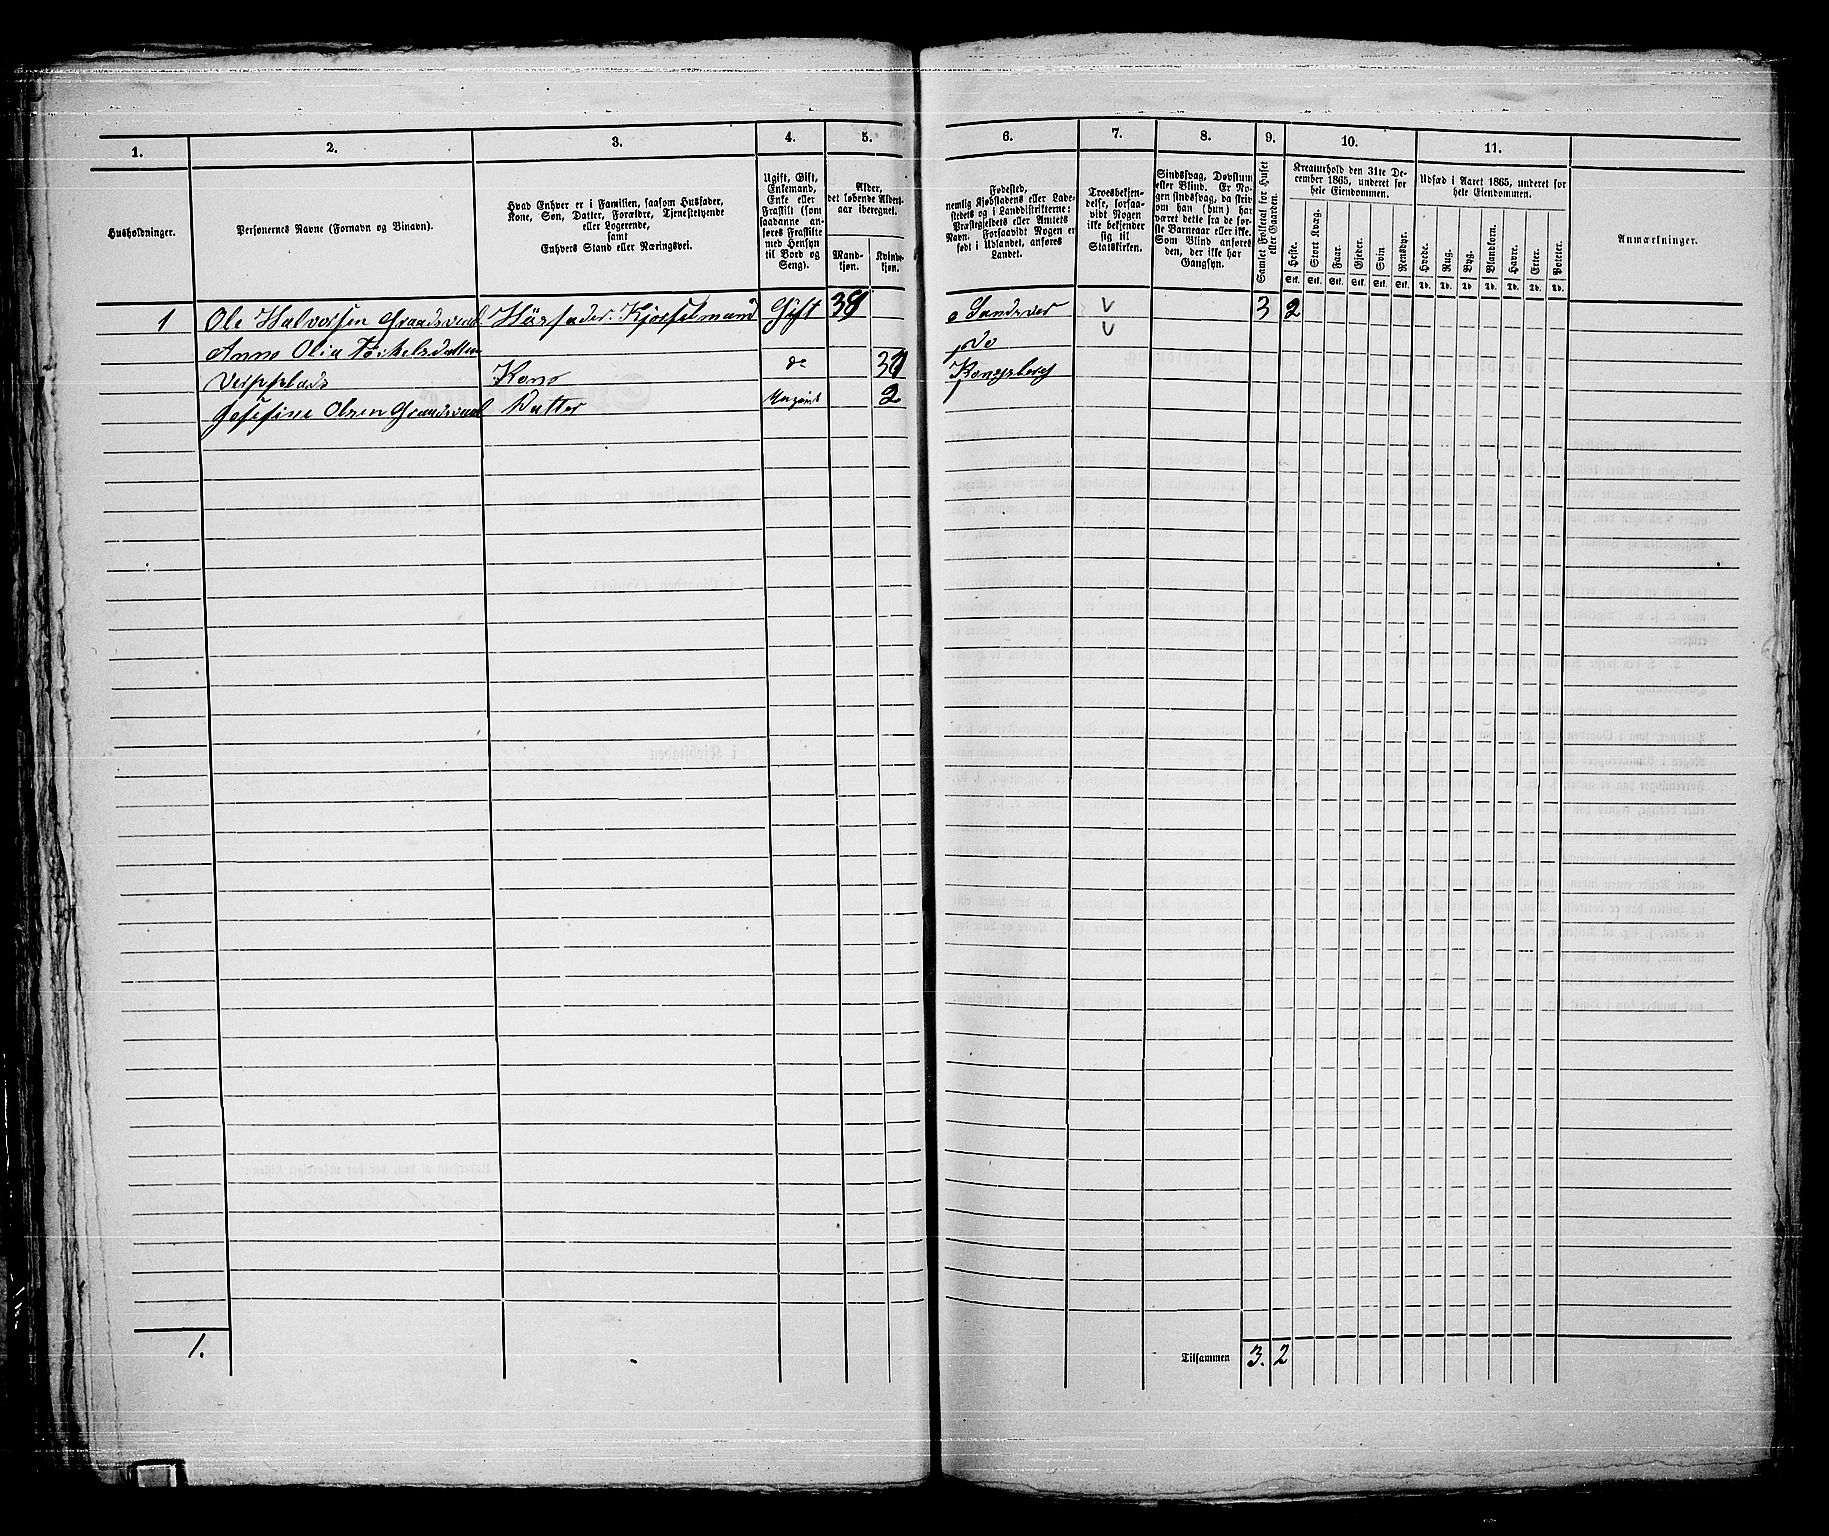 1.
2.
3.
4.
5.
6.
7.
8.
9.
10.
11.
Husholdninger.
Personernes Navne (Fornavn og Binavn).
Hvad Enhver er i Familien, saasom Husfader,
Kone, Søn, Datter, Forældre, Tjenestetyende
eller Logerende,
samt
Enhvers Stand eller Næringsvei.
Ugift, Gift,
Enkemand,
Enke eller
Fraskilt (som
saadanne an-
føres Fraskilte
med Hensyn
til Bord og
Seng).
Alder,
det løbende Alders-
aar iberegnet.
Mand-
kjøn.
Kvinde-
kjøn.
Fødested,
nemlig Kjøbstadens eller Lade-
stedets og i Landdistrikterne:
Præstegjældets eller Amtets
Navn. Forsaavidt Nogen er
født i Udlandet, anføres
Landet.
Troesbekjen-
delse, forsaa-
vidt Nogen
ikke bekjender
sig til
Statskirken.
Sindssvag, Døvstum
eller Blind. Er No-
gen sindssvag, da skriv
om han (hun) har
været dette fra de før-
ste Barneaar eller ikke.
Som Blind anføres
den, der ikke har
Gangsyn.
Samlet Folketal for Huset
eller Gaarden.
Kreaturhold den 31te De-
cember 1865, underet for
hele Eiendommen.
Heste.
Stort Kvæg.
Faar.
Gjeder.
Svin
Rensdyr.
Stk. Stk. Stk. Stk. Stk. Stk.
Udsæd i Aaret 1865, underet for
hele Eiendommen.
Hvede.
Rug.
Byg.
Blandkorn.
Havre.
Erter.
Poteter.
Td. Td. Td. Td. Td. Td. Td.
Anmærkninger.
1 Ole Halvorsen Husfader. Gift 39 Sandsver 3 2
Anne Olia do
Kone do Kongsberg
Josefine Olsen Datter Ugivt 2
1.
Tilsammen 3. 2